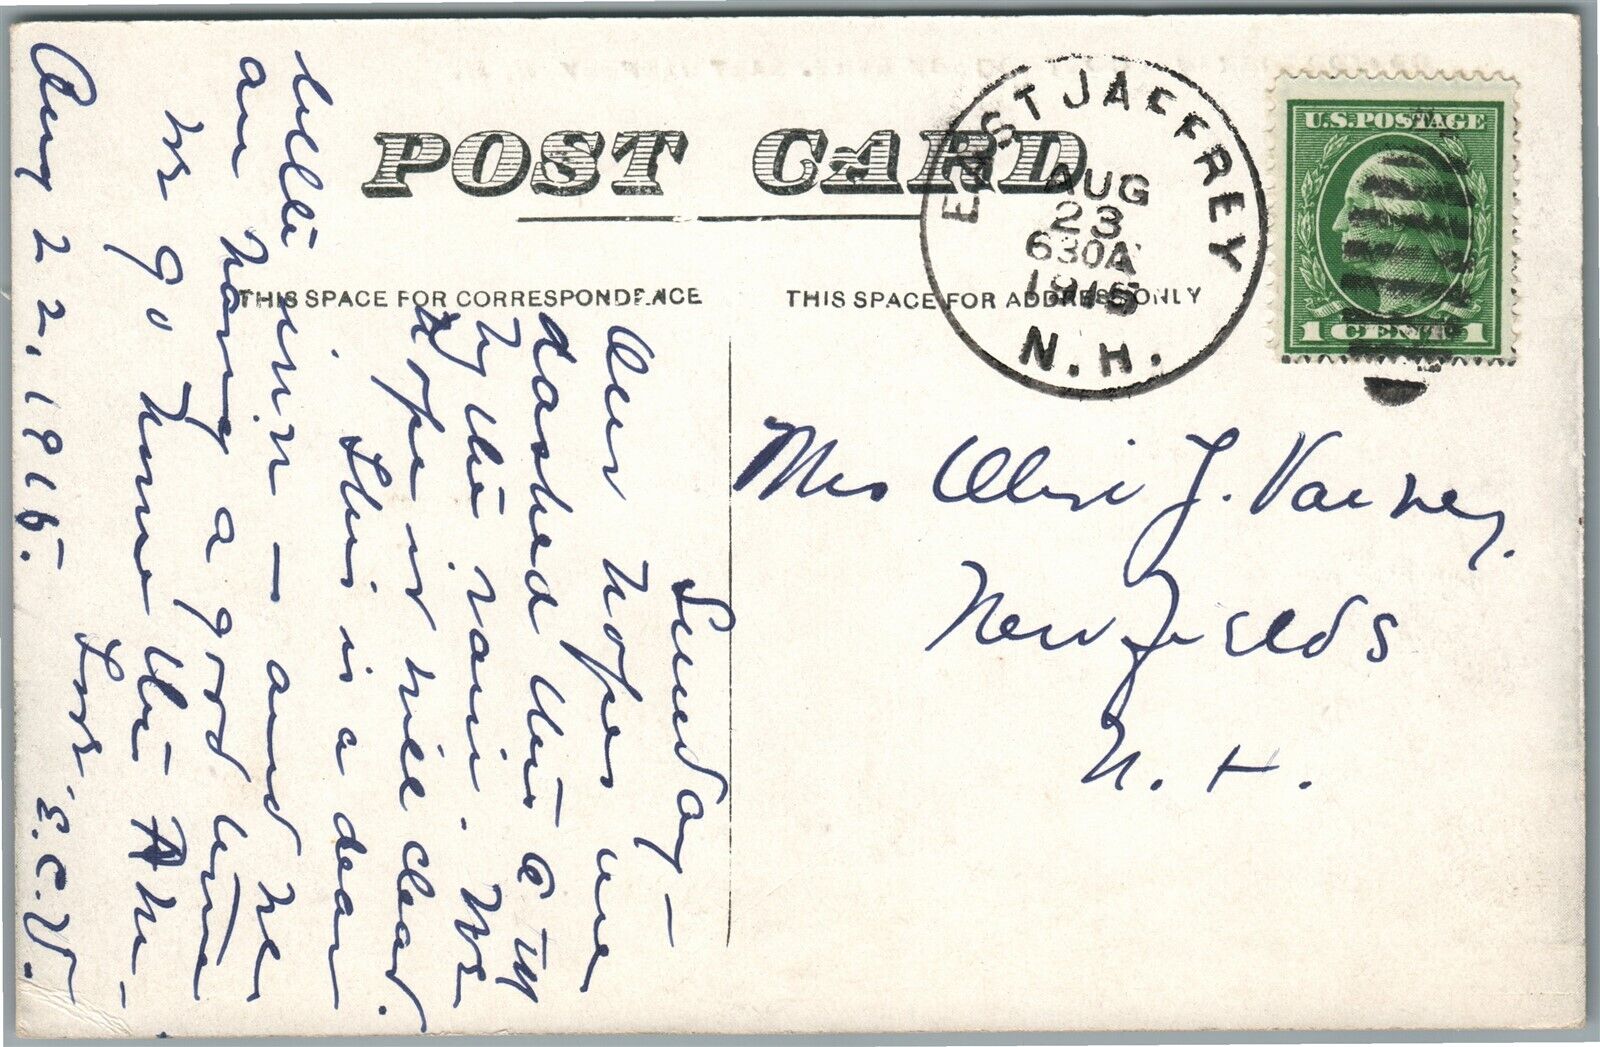 POST CARD
THIS SPACE FOR CORRESPONDENCE
THIS SPACE FOR ADDRESS ONLY
EAST JAFFREY
AUG
23
630A
1915
N.H.
U.S. POSTAGE
1 CENT 1
Mrs Olive J. Varney,
Newfields
N. H.
Sunday —
Our hopes are
dashed this a m
by the rain. We
hope it will clear.
This is a dear
little inn — and we
are having a good time
We go home this P.M. –
Love E.C.V.
Aug 22, 1915.